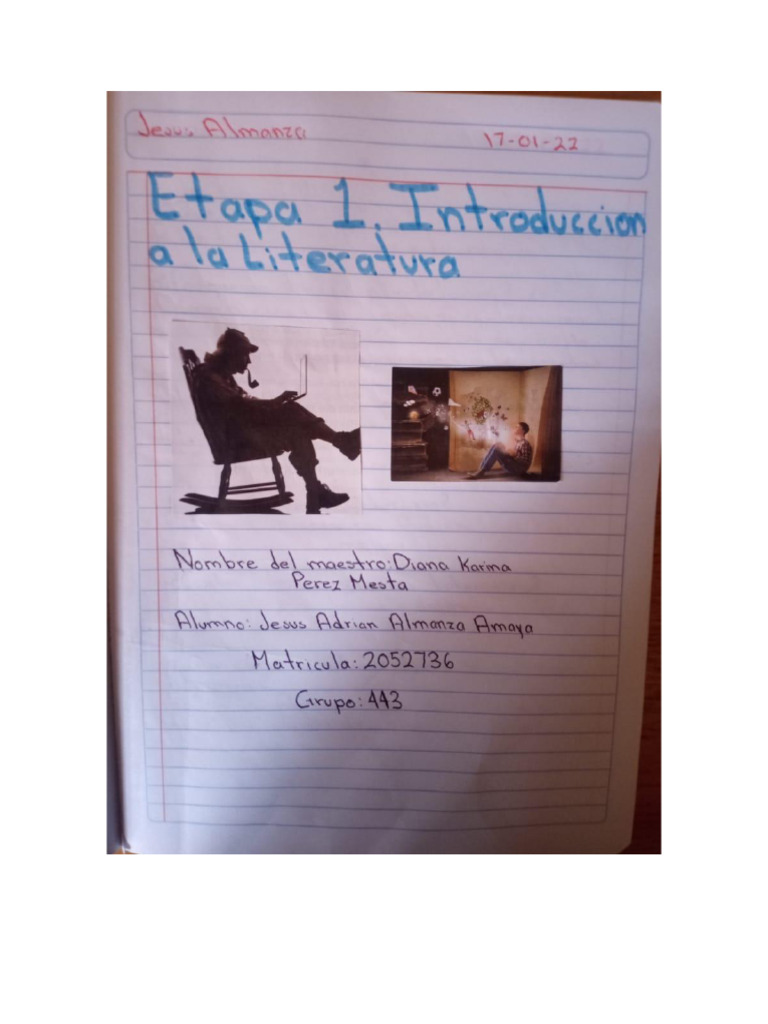 Jesus Almanza
17-01-22
Etapa 1. Introduccion
a la Literatura
Nombre del maestro: Diana Karina
Perez Mesta
Alumno: Jesus Adrian Almanza Amaya
Matricula: 2052736
Grupo: 443